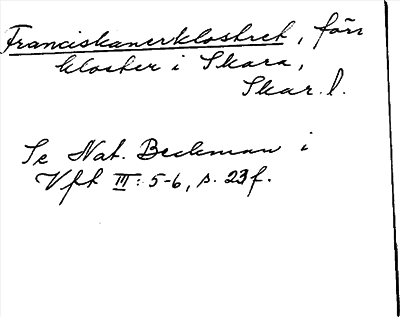 Franciskanerklostret, förr
kloster i Skara,
Skar. l.
Se Nat. Beckman i
Vft III: 5-6, s. 23 f.